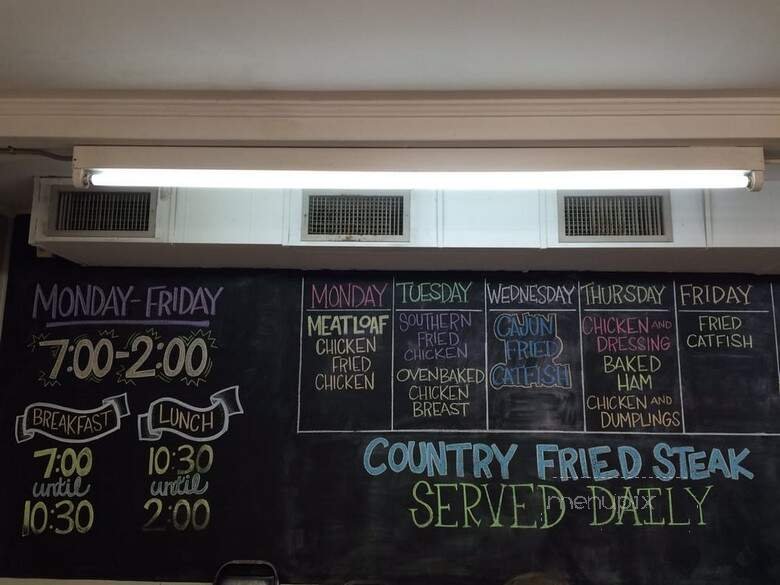 MONDAY-FRIDAY
7:00-2:00
BREAKFAST
7:00
until
10:30
LUNCH
10:30
until
2:00
MONDAY
MEATLOAF
CHICKEN
FRIED
CHICKEN
TUESDAY
SOUTHERN
FRIED
CHICKEN
OVEN BAKED
CHICKEN
BREAST
WEDNESDAY
CAJUN
FRIED
CATFISH
THURSDAY
CHICKEN AND
DRESSING
BAKED
HAM
CHICKEN AND
DUMPLINGS
FRIDAY
FRIED
CATFISH
COUNTRY FRIED STEAK
SERVED DAILY
menupix